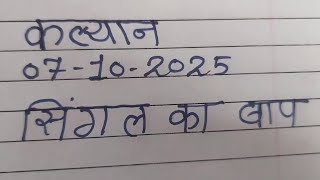 कल्यान
07-10-2025
सिंगल का बाप